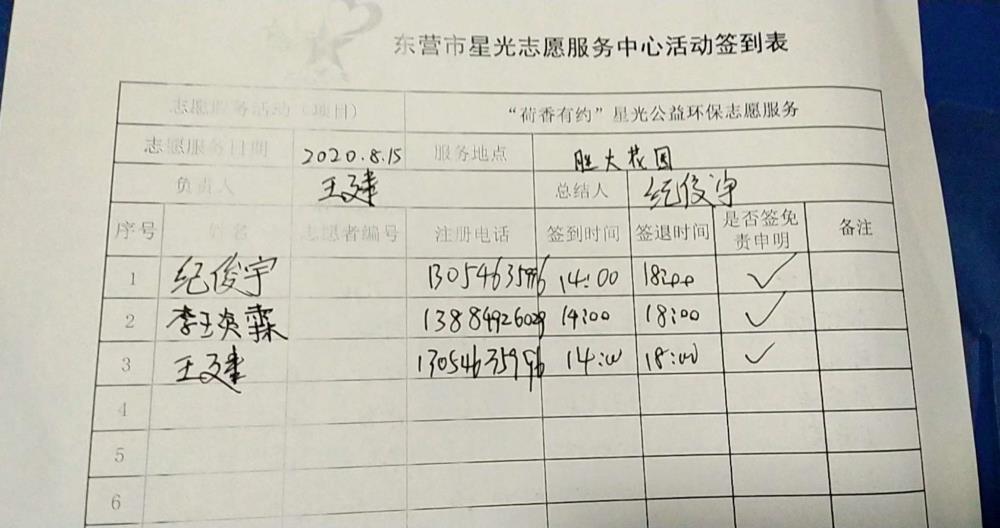 东营市星光志愿服务中心活动签到表
志愿服务活动（项目） “荷香有约”星光公益环保志愿服务
志愿服务日期 2020.8.15 服务地点 胜大花园
负责人 王建 总结人 纪俊宇
序号 姓名 志愿者编号 注册电话 签到时间 签退时间 是否签免责申明 备注
1 纪俊宇 13054635996 14:00 18:00 ✓
2 李玉 霖 13884926029 14:00 18:00 ✓
3 王建 13054635996 14:00 18:00 ✓
4
5
6